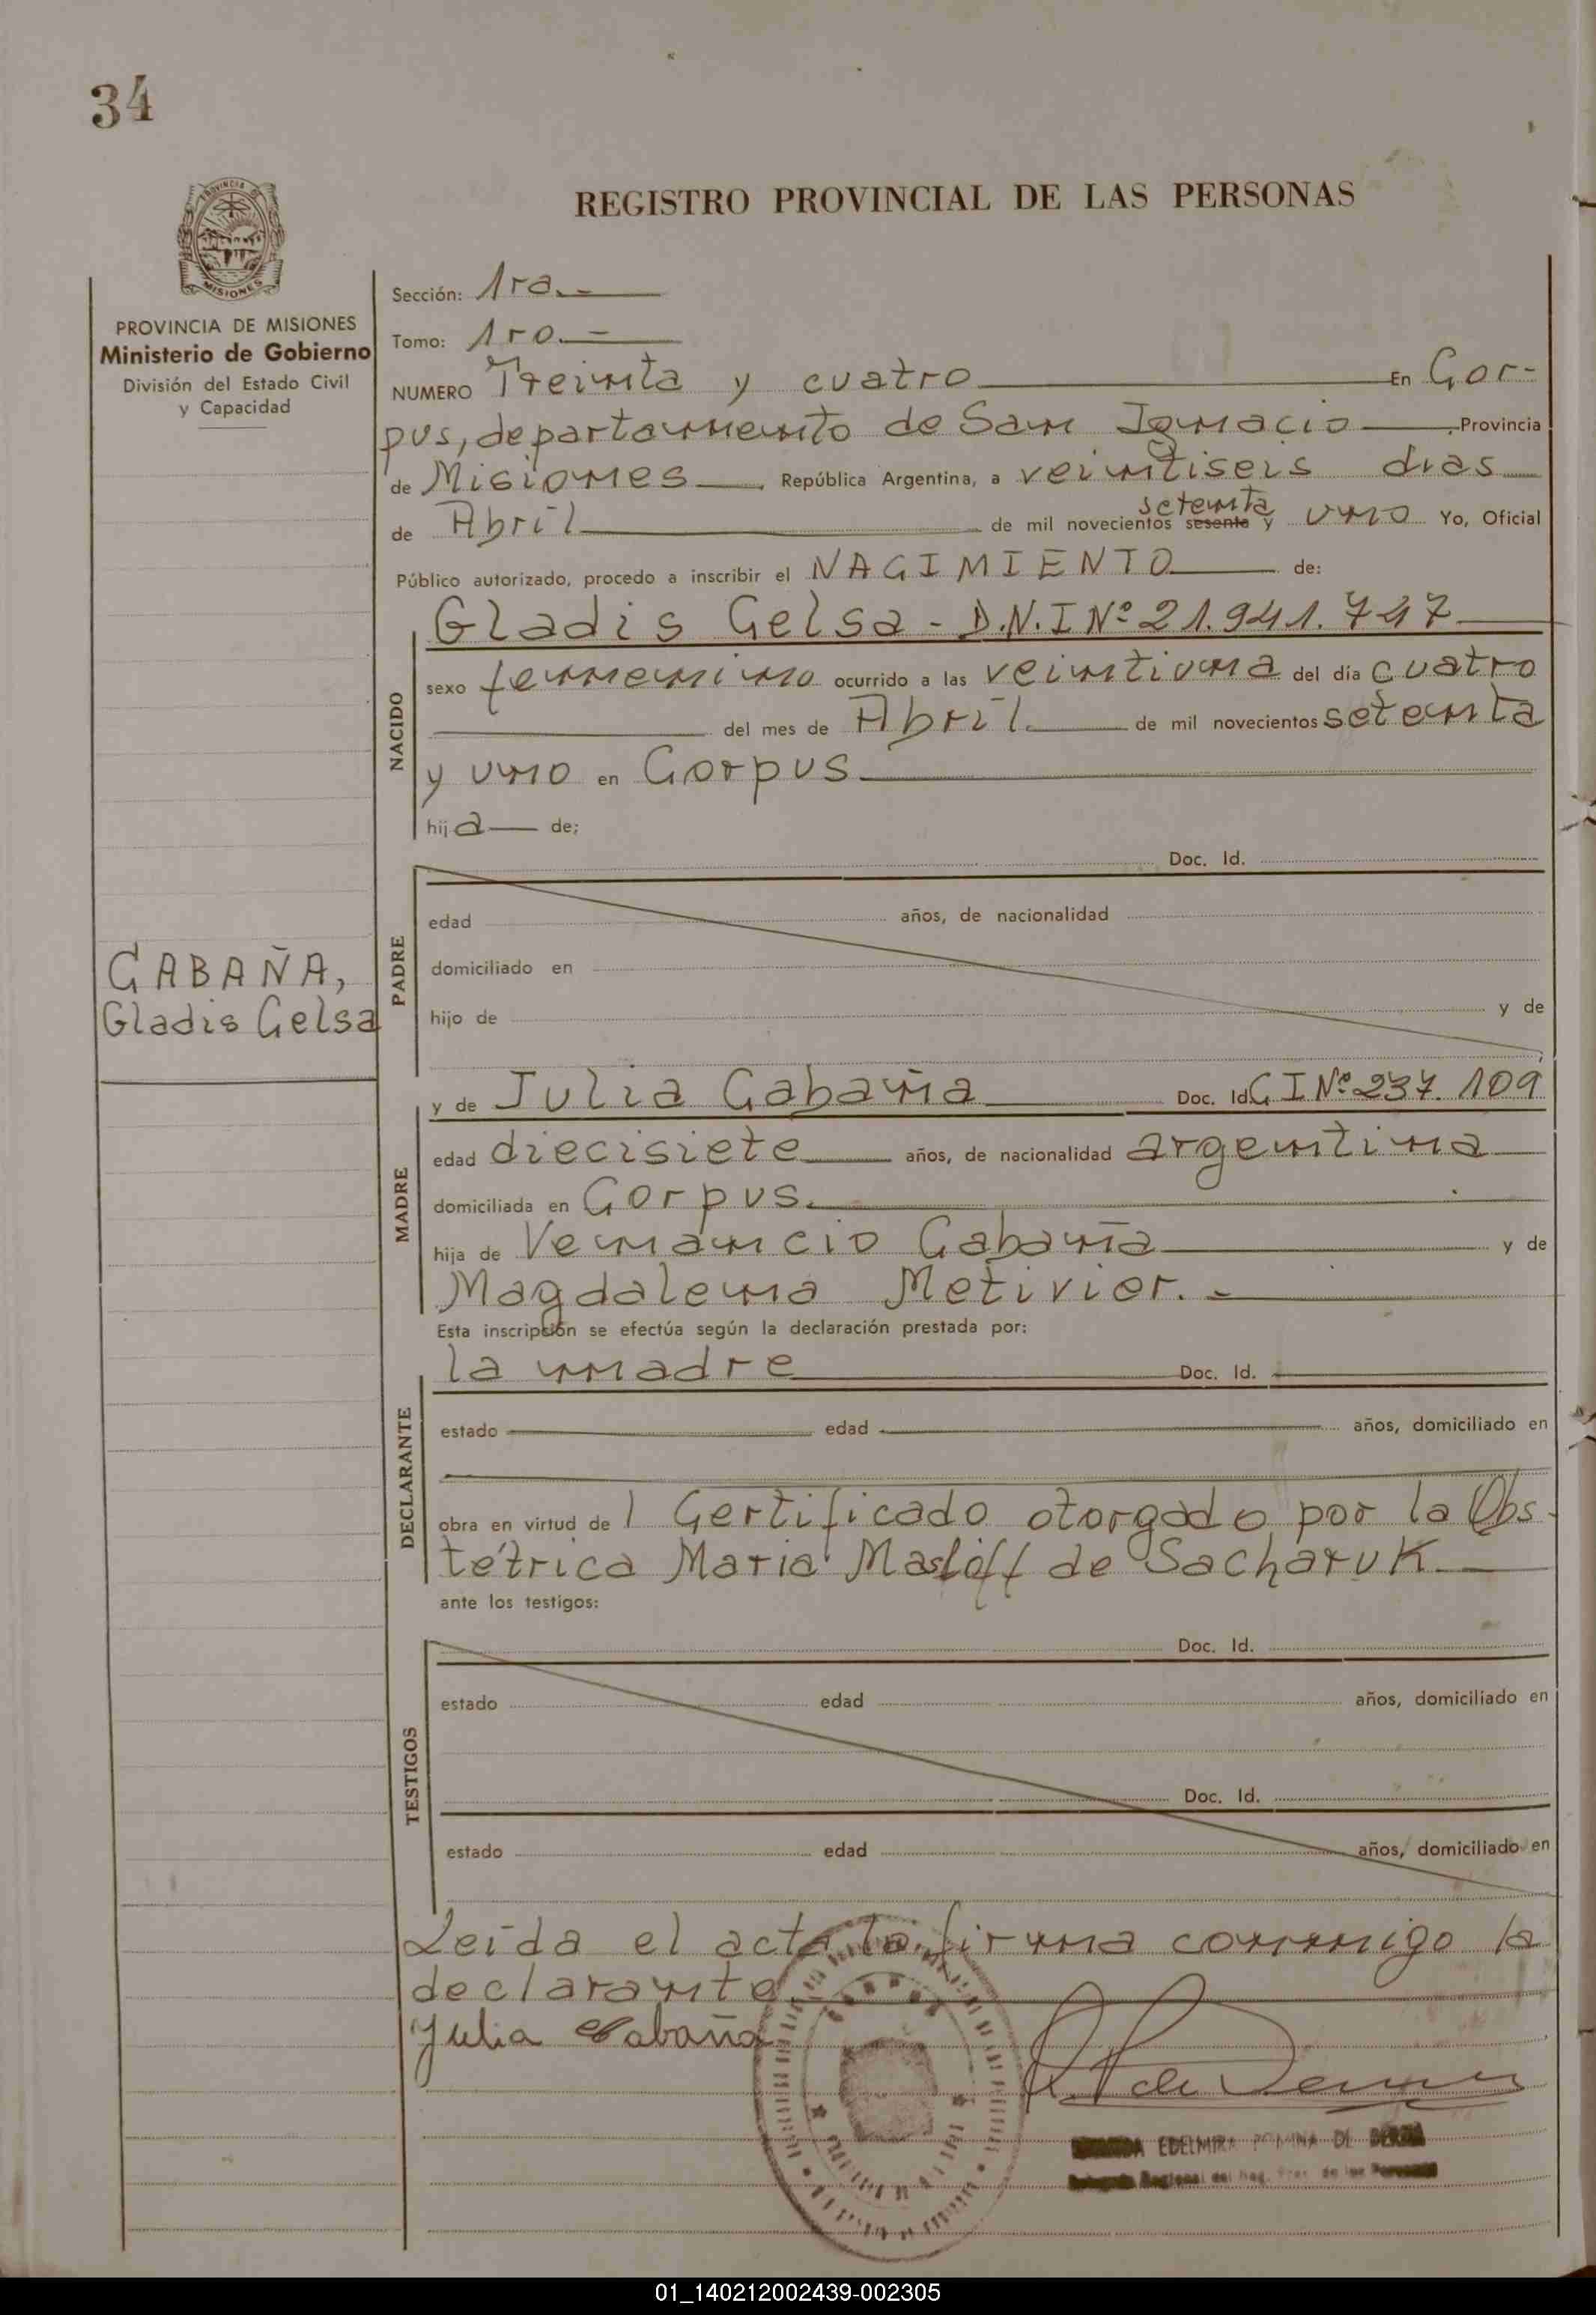 34
PROVINCIA DE
MISIONES
REGISTRO PROVINCIAL DE LAS PERSONAS
PROVINCIA DE MISIONES
Ministerio de Gobierno
División del Estado Civil
y Capacidad
CABAÑA,
Gladis Celsa
Sección: 1ra.-
Tomo: 1ro.-
NUMERO Treinta y cuatro En Cor-
pus, departamento de San Ignacio Provincia
de Misiones, República Argentina, a veintiseis dias
setenta
de Abril de mil novecientos sesenta y uno Yo, Oficial
Público autorizado, procedo a inscribir el NACIMIENTO de:
NACIDO
Gladis Celsa - D.N.I Nº 21.941.747
sexo femenino ocurrido a las veintiuna del día cuatro
del mes de Abril de mil novecientos setenta
y uno en Corpus
hija de;
PADRE
Doc. Id.
edad años, de nacionalidad
domiciliado en
hijo de y de
MADRE
y de Julia Cabaña Doc. Id. C I Nº 237.109
edad diecisiete años, de nacionalidad argentina
domiciliada en Corpus.
hija de Venancio Cabaña y de
Magdalena Metivier.-
Esta inscripción se efectúa según la declaración prestada por:
DECLARANTE
la madre Doc. Id.
estado edad años, domiciliado en
obra en virtud del Certificado otorgado por la Obs-
tétrica Maria Masloff de Sacharuk
ante los testigos:
TESTIGOS
Doc. Id.
estado edad años, domiciliado en
Doc. Id.
estado edad años, domiciliado en
Leída el acta la firma conmigo la
declarante
Julia Cabaña
EDELMIRA DE
Regional del Reg. Prov. de las Personas
01_140212002439-002305